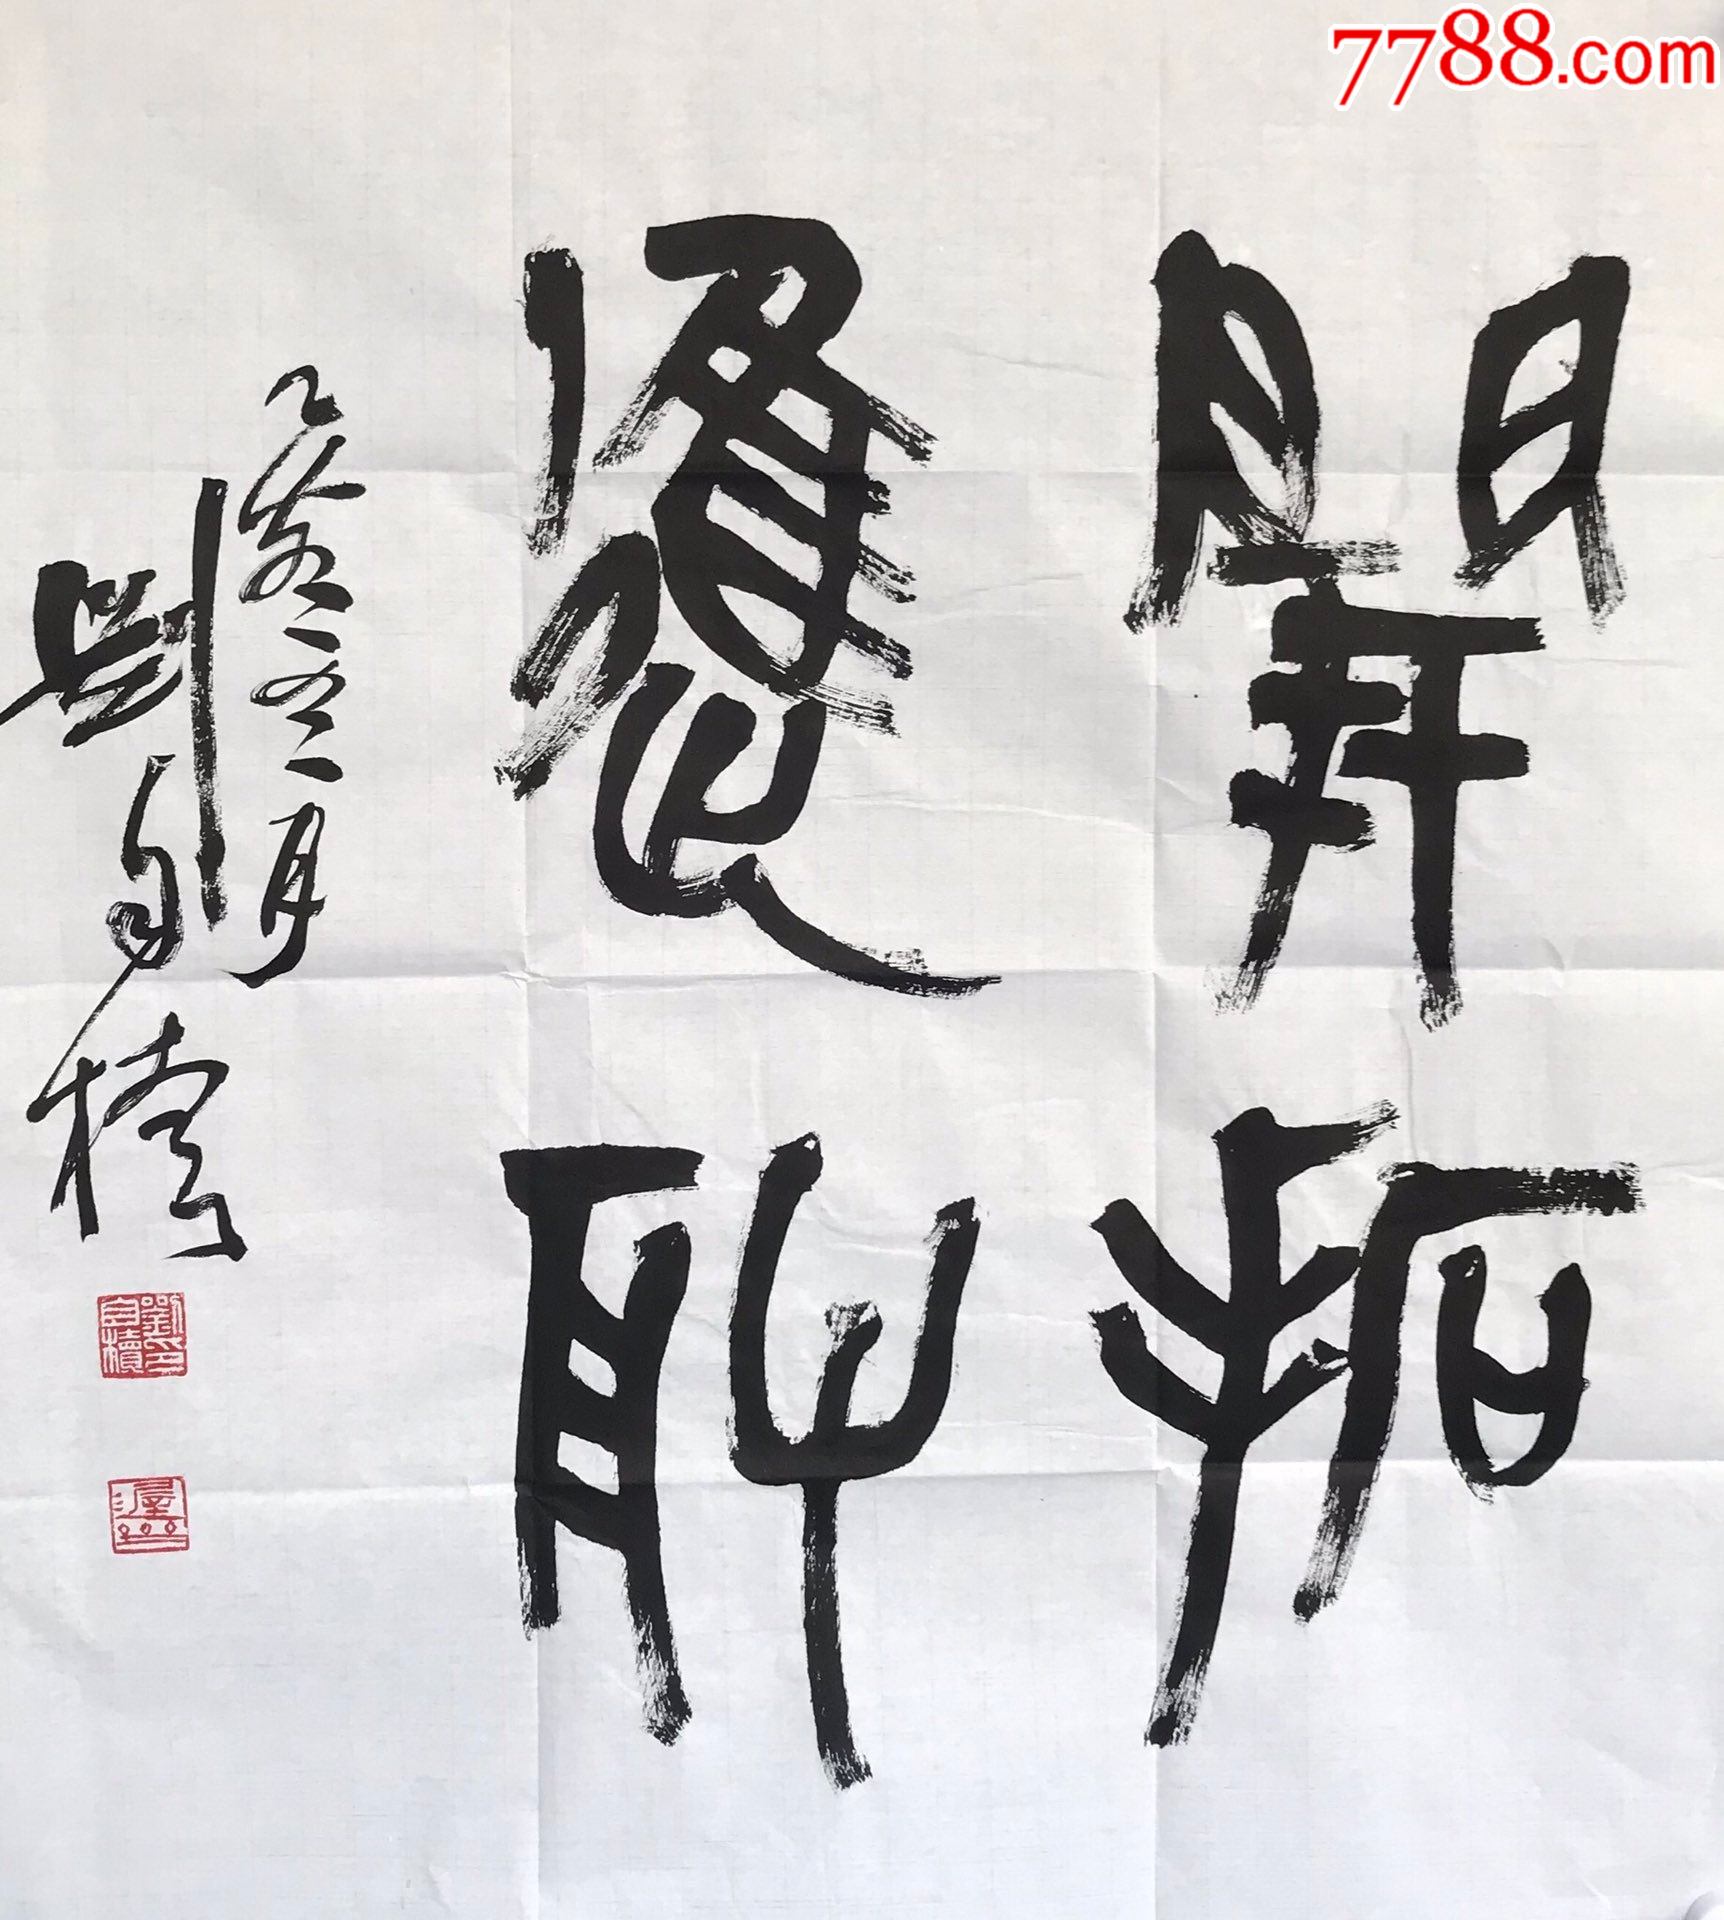 7788.com
開拓
進取
乙亥 月
劉自櫝
劉印
自櫝